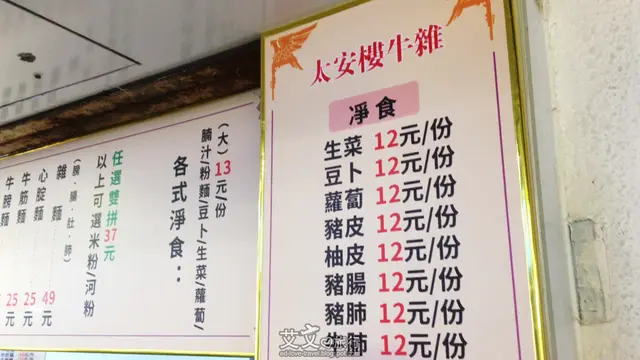 太安樓牛雜
淨食
生菜 12元/份
豆卜 12元/份
蘿蔔 12元/份
豬皮 12元/份
柚皮 12元/份
豬腸 12元/份
豬肺 12元/份
牛肺 12元/份
(大) 13元/份
腩汁/粉麵/豆卜/生菜/蘿蔔/
各式淨食：
任選雙拼37元
以上可選米粉/河粉
(腩．腸．肚．肺)
雜麵 49元
心腚麵 25元
牛筋麵 25元
牛膀麵